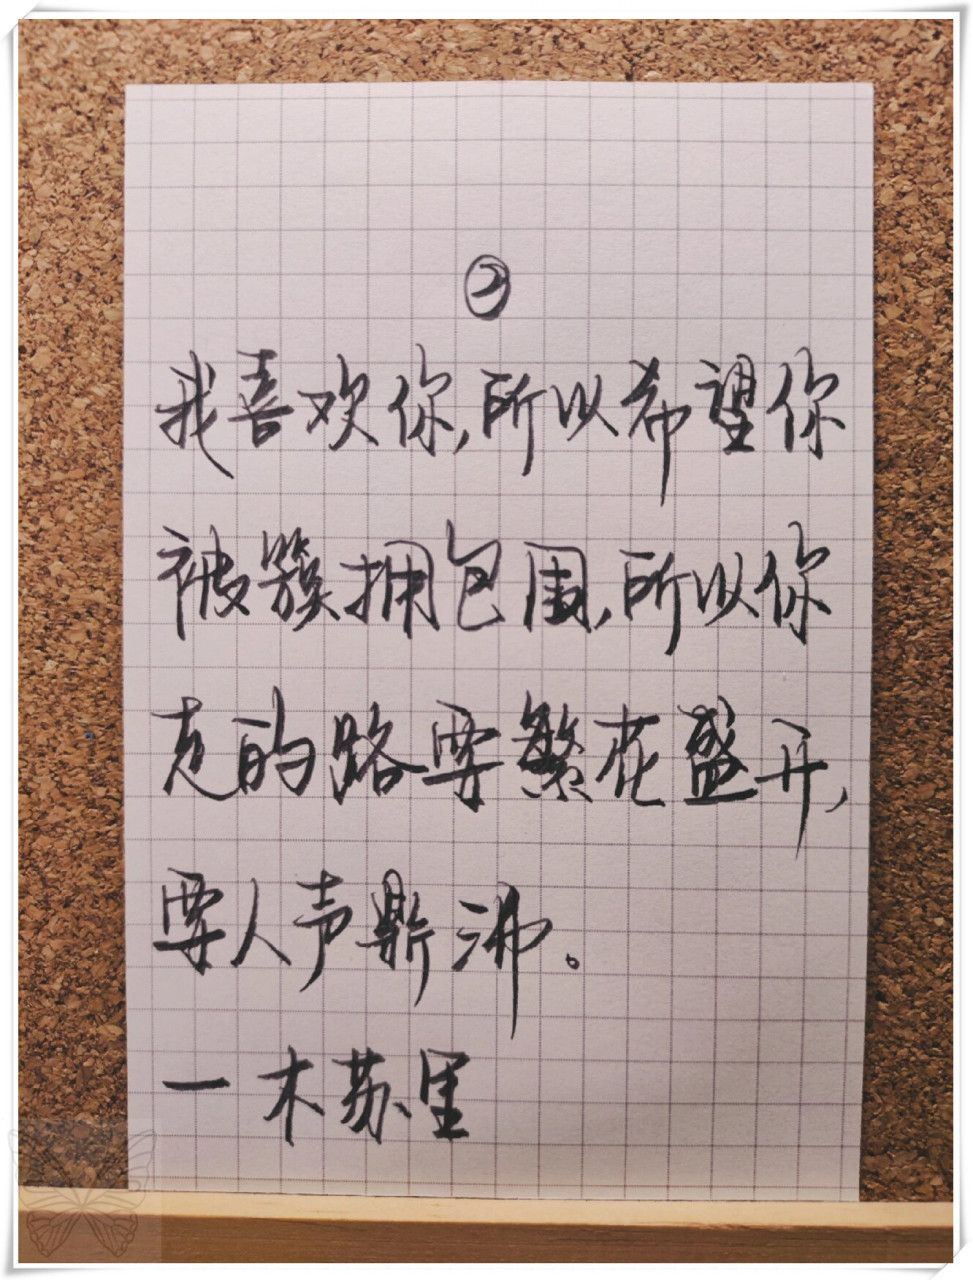 ②
我喜欢你,所以希望你
被簇拥包围,所以你
走的路要繁花盛开,
要人声鼎沸。
一木苏里